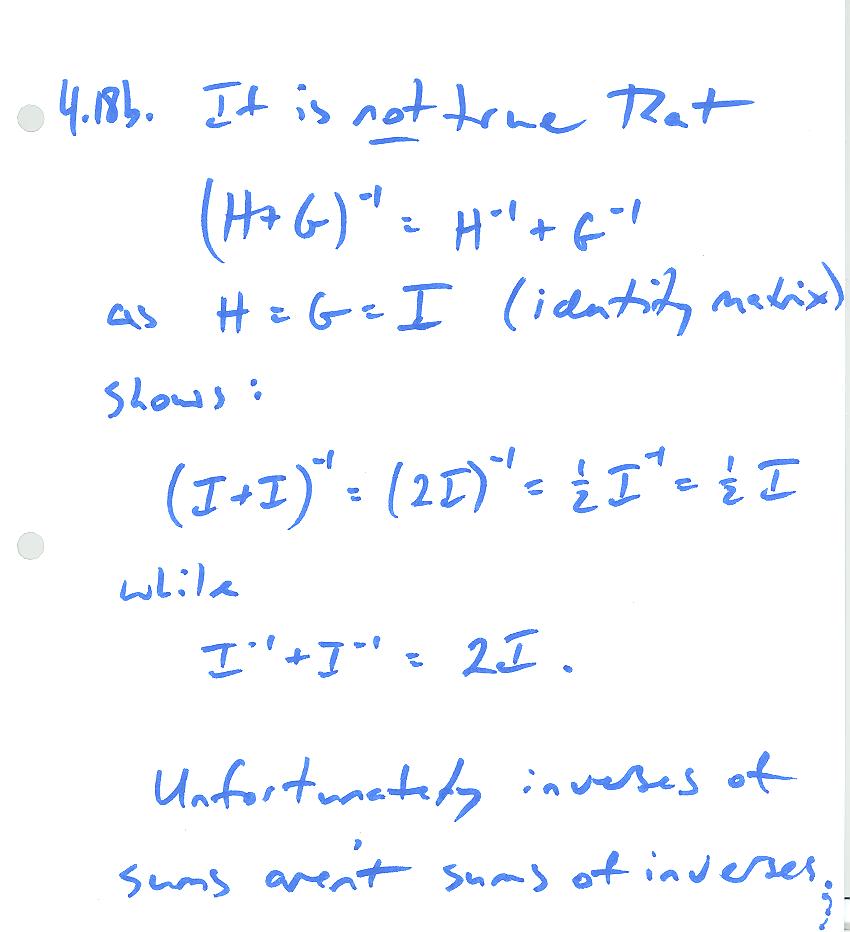 4.18b. It is not true that
(H+G)⁻¹ = H⁻¹ + G⁻¹
as H = G = I (identity matrix)
shows:
(I+I)⁻¹ = (2I)⁻¹ = ½ I⁻¹ = ½ I
while
I⁻¹ + I⁻¹ = 2I.
Unfortunately inverses of
sums aren't sums of inverses.